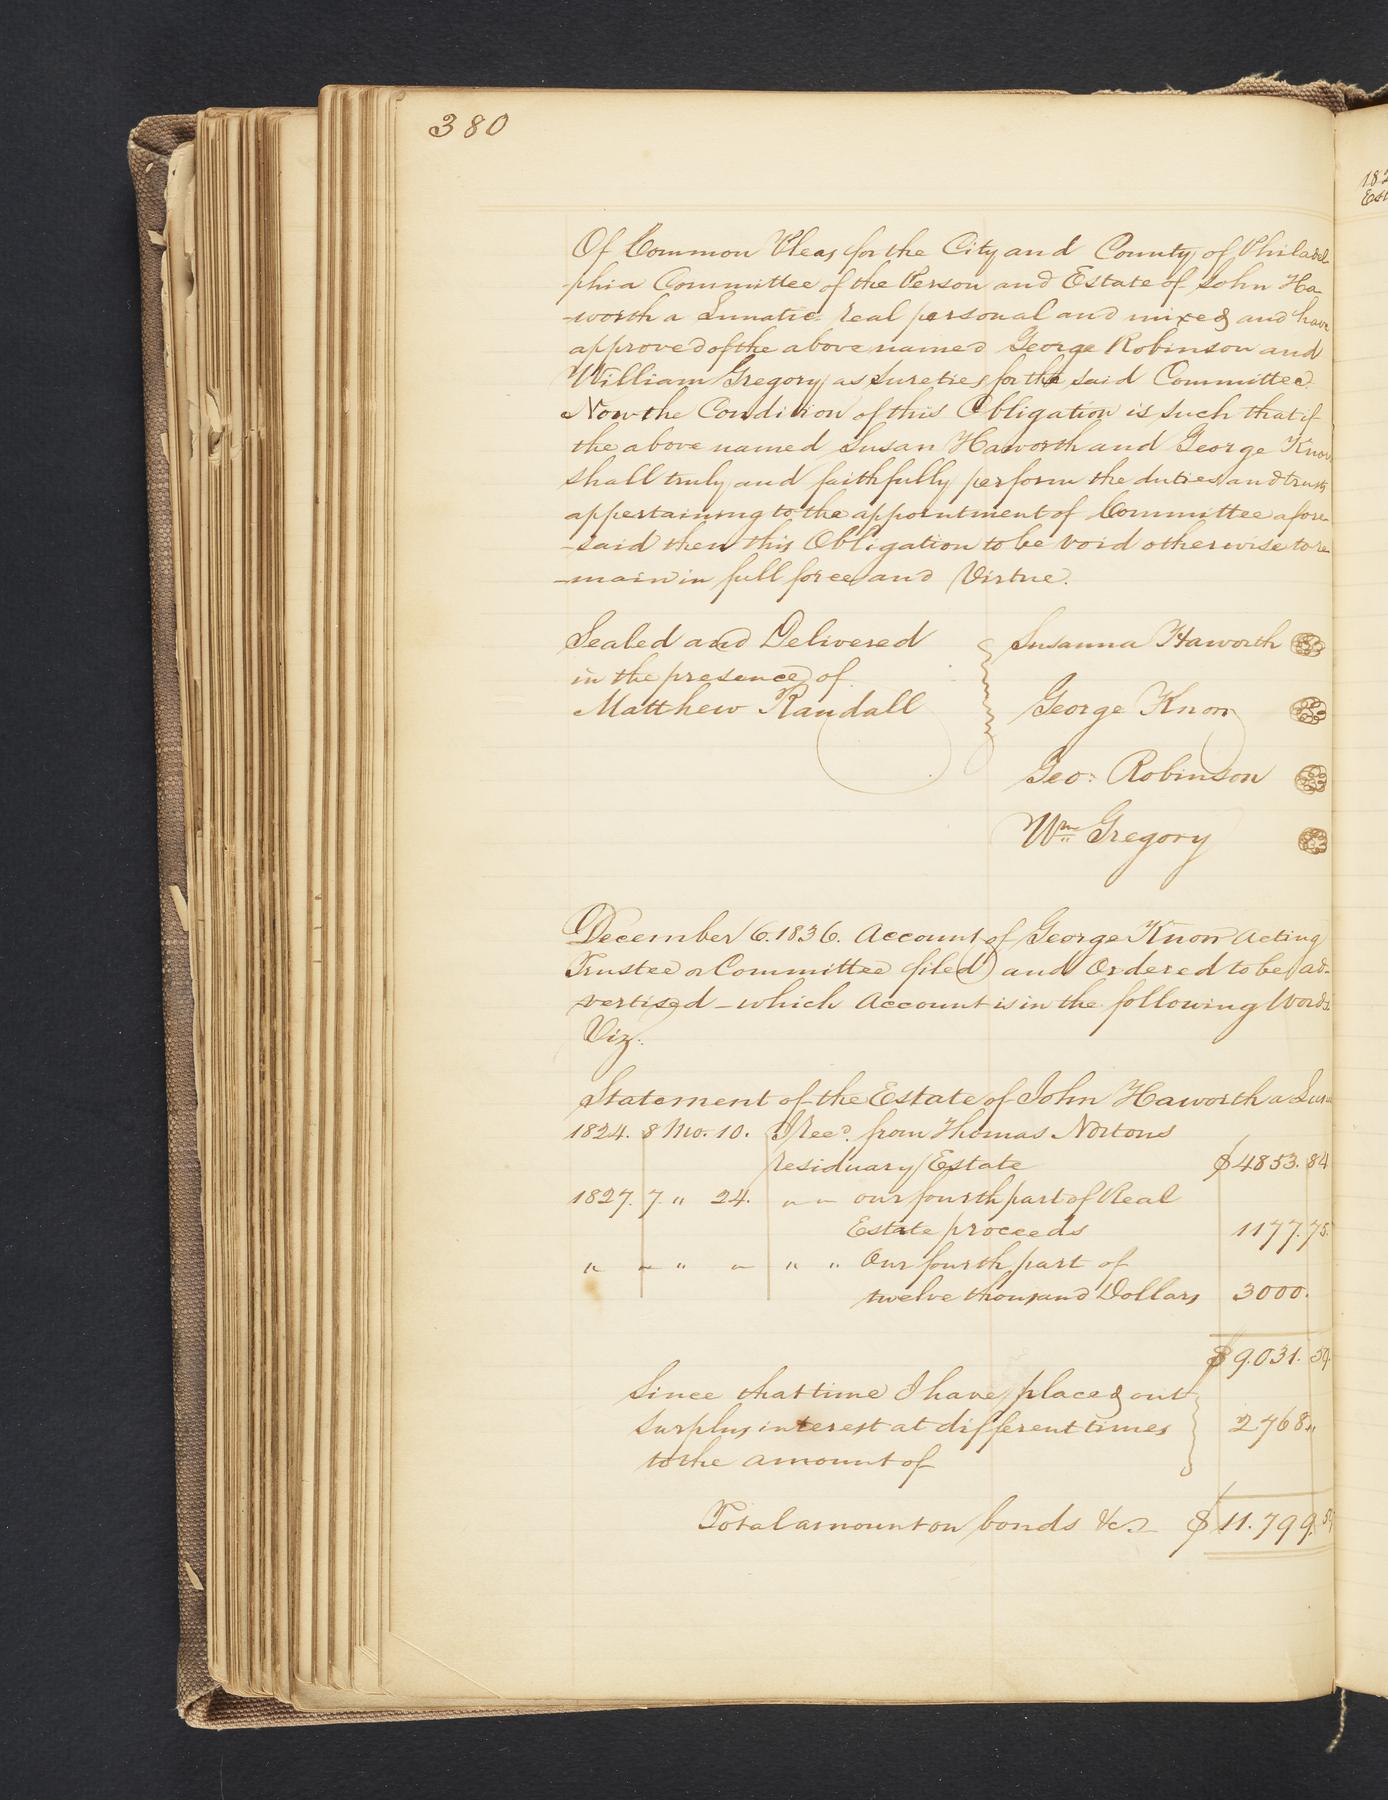 380
Of Common Pleas for the City and County of Philadel
-phia Committee of the Person and Estate of John Ha-
-worth a Lunatic real personal and mixed and have
approved of the above named George Robinson and
William Gregory as Sureties for the said Committee
Now the Condition of this Obligation is such that if
the above named Susan Haworth and George Knorr
shall truly and faithfully perform the duties and trusts
appertaining to the appointment of Committee afore-
-said then this Obligation to be void otherwise to re-
-main in full force and Virtue.
Sealed and Delivered
in the presence of
Matthew Randall
Susanna Haworth
George Knorr
Geo: Robinson
Wm Gregory
December 6. 1836. Account of George Knorr Acting
Trustee or Committee filed and Ordered to be ad-
vertised – which Account is in the following Words
Viz.
Statement of the Estate of John Haworth a
1824. 8 Mo. 10. I recd. from Thomas Nortons
residuary Estate $4853. 84
1827. 7 " 24. " " our fourth part of Real
Estate proceeds 1177. 75
" " " " " " Our fourth part of
twelve thousand Dollars 3000.
$9.031. 59
Since that time I have placed out
Surplus interest at different times 2768 "
to the amount of
Total amount on bonds &c. $11.799.
182
Est